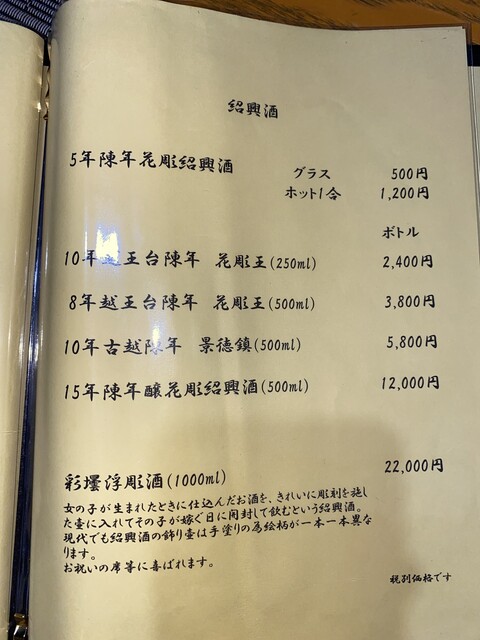 紹興酒
5年陳年花彫紹興酒 グラス 500円
ホット1合 1,200円
ボトル
10年越王台陳年 花彫王(250ml) 2,400円
8年越王台陳年 花彫王(500ml) 3,800円
10年古越陳年 景徳鎮(500ml) 5,800円
15年陳年醸花彫紹興酒(500ml) 12,000円
彩壜浮彫酒(1000ml) 22,000円
女の子が生まれたときに仕込んだお酒を、きれいに彫刻を施し
た壺に入れてその子が嫁ぐ日に開封して飲むという紹興酒。
現代でも紹興酒の飾り壺は手塗りの為絵柄が一本一本異な
ります。
お祝いの席等に喜ばれます。
税別価格です